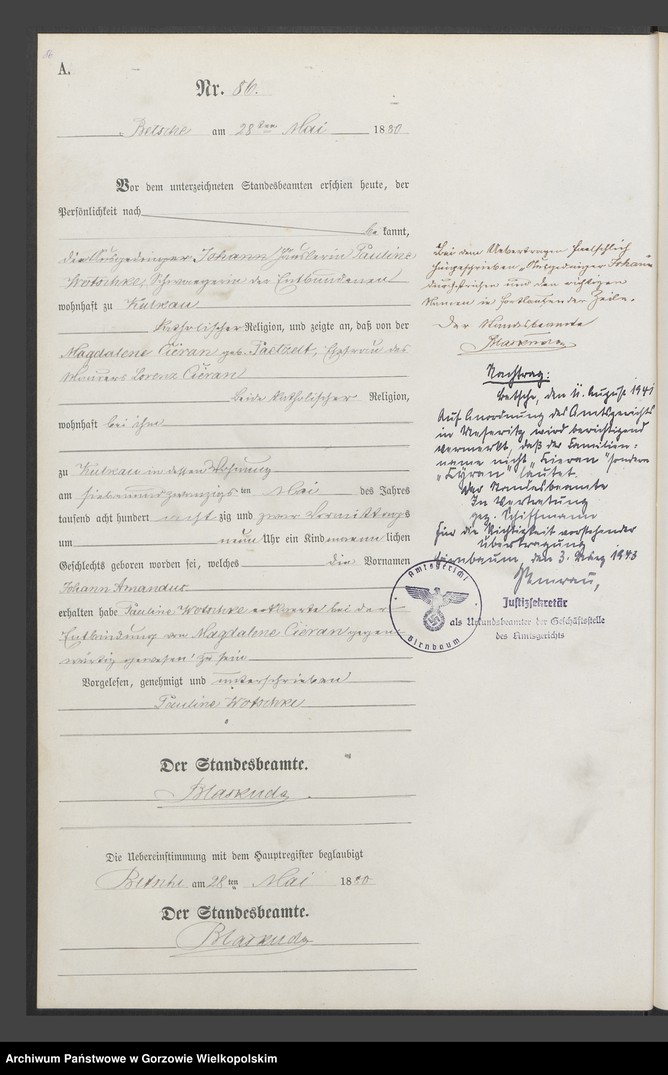 A.
Nr. 86.
Betsche am 28ten Mai 1880
Vor dem unterzeichneten Standesbeamten erschien heute, der
Persönlichkeit nach
be kannt,
die Johann Häuslerin Pauline
Wotschke, Schwaegerin der Entbundenen
wohnhaft zu Kutkau
katholischer Religion, und zeigte an, daß von der
Magdalene Cieran geb. Paetzelt, Ehefrau des
Maurers Lorenz Cieran
beide katholischer Religion,
wohnhaft bei ihm
zu Kutkau in dessen Wohnung
am siebenundzwanzigsten Mai des Jahres
tausend acht hundert achtzig und zwar Vormittags
um neun Uhr ein Kind männlichen
Geschlechts geboren worden sei, welches die Vornamen
Johann Amandus
erhalten habe Pauline Wotschke erklaerte bei der
Entbindung der Magdalene Cieran gegen-
wärtig gewesen zu sein
Vorgelesen, genehmigt und unterschrieben
Pauline Wotschke
Der Standesbeamte.
Die Uebereinstimmung mit dem Hauptregister beglaubigt
Betsche am 28ten Mai 1880
Der Standesbeamte.
Bei dem Uebertragen faelschlich
hingeschrieben Johann
durchstrichen und den richtigen
Namen in fortlaufender Zeile.
Der Standesbeamte
Nachtrag:
Betsche, den 4. August 1941
Auf Anordnung des Amtsgerichts
in Meseritz wird berichtigend
vermerkt, daß der Familien-
name nicht "Cieran" sondern
"Cyran" lautet.
Der Standesbeamte
In Vertretung
gez. Schiffmann
Für die Richtigkeit vorstehender
Übertragung
Birnbaum, den 3. 1943
Justizsekretär
als Urkundsbeamter der Geschäftsstelle
des Amtsgerichts
Amtsgericht
Birnbaum
Archiwum Państwowe w Gorzowie Wielkopolskim